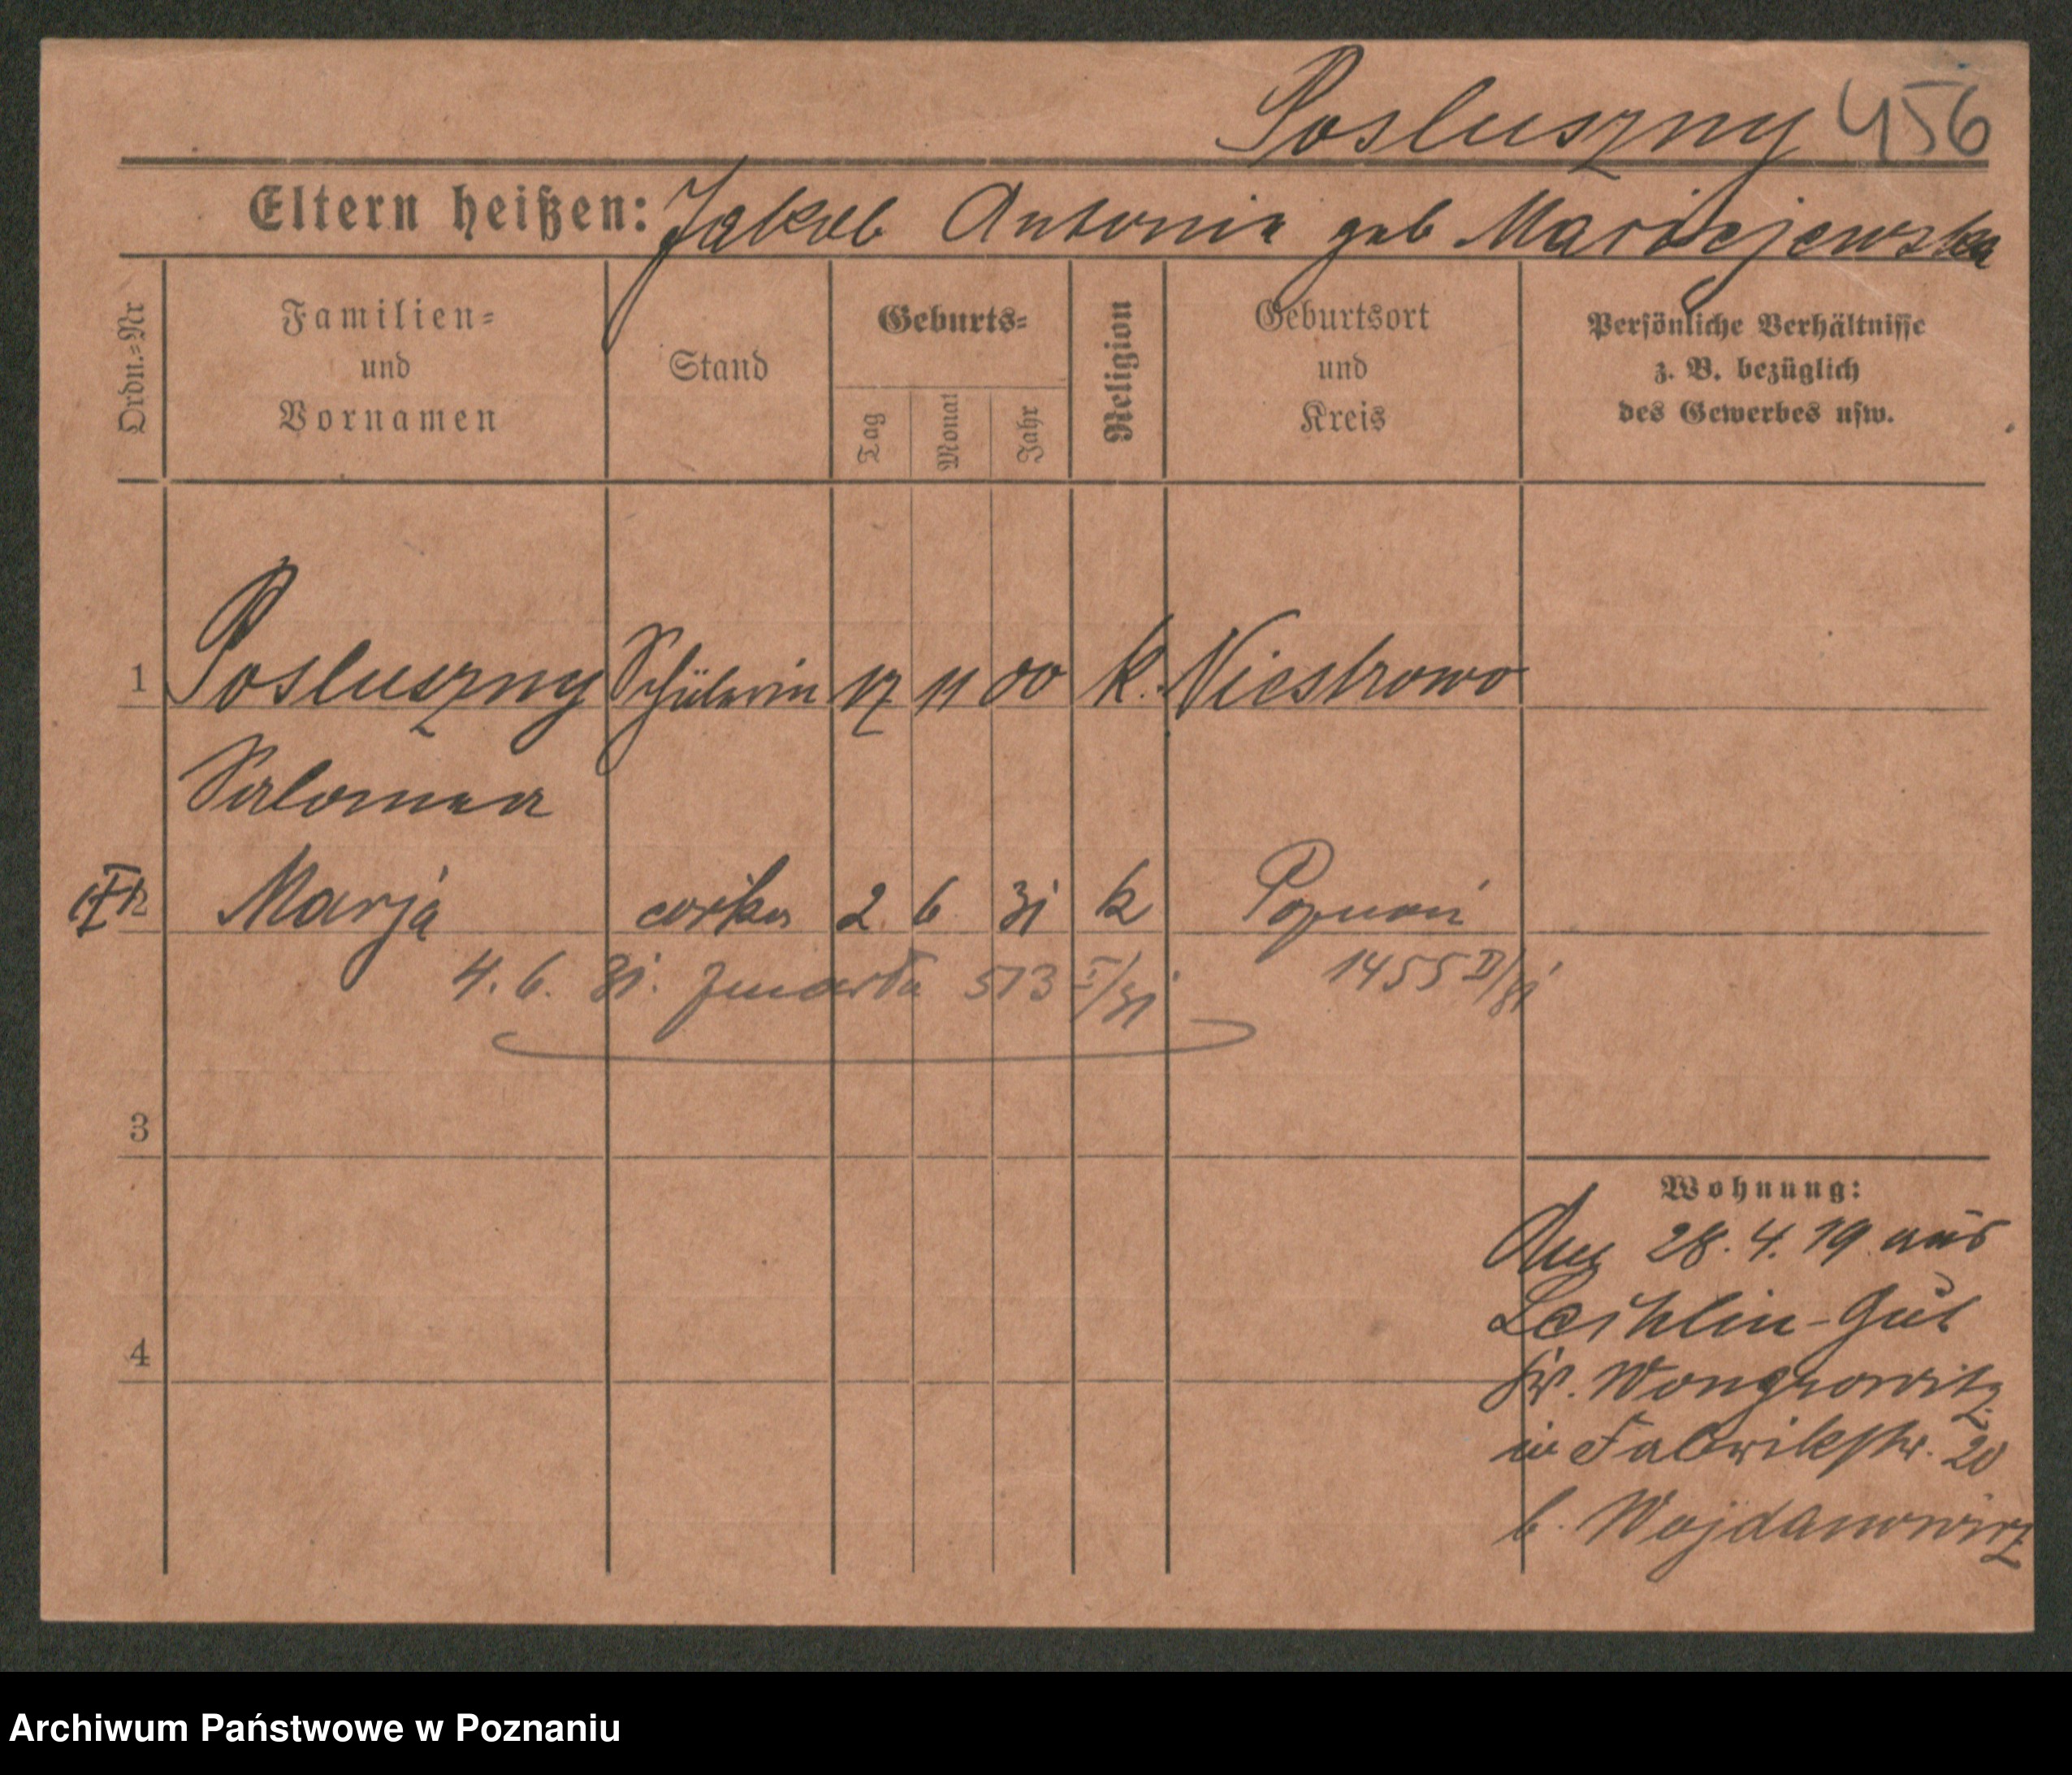 Posluszny 456
Eltern heißen: Jakob Antonie geb Maciejewska
Ordn.-Nr
Familien-
und
Vornamen
Stand
Geburts-
Tag
Monat
Jahr
Religion
Geburtsort
und
Kreis
Persönliche Verhältnisse
z. B. bezüglich
des Gewerbes usw.
1 Posluszny Schülerin 17 11 00 k. Niestrowo
Salomea
2 Marja córka 2. 6 31 k Poznań
4. 6. 31. zmarła 513 I/31 1455 II/31
3
4
Wohnung:
28. 4. 19 aus
Lechlin-Gut
Kr. Wongrowitz
in Fabrikstr. 20
b. Wojdanowicz
Archiwum Państwowe w Poznaniu